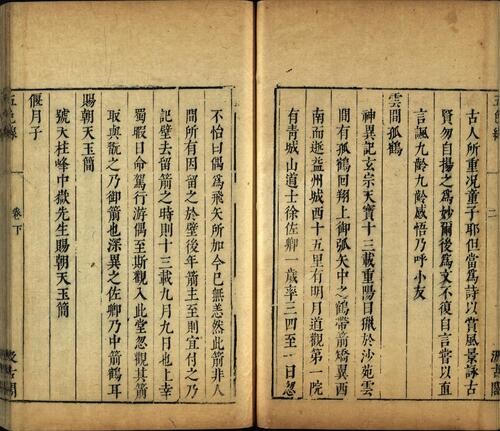 古人所重况童子耶但當爲詩以賞風景詠古
賢勿自揚之爲妙爾後爲文不復自言常以直
言諷九齡九齡感悟乃呼小友
雲間孤鶴
神異記玄宗天寶十三載重陽日獵於沙苑雲
間有孤鶴回翔上御弧矢中之鶴帶箭矯翼西
南而逝益州城西十五里有明月道觀第一院
有青城山道士徐佐卿一歲率三四至一日忽
不怡曰偶爲飛矢所加今已無恙然此箭非人
間所有因留之於壁後年箭主至則宜付之乃
記壁去留箭之時則十三載九月九日也上幸
蜀暇日命駕行游偶至斯觀入此堂忽觀其箭
取與翫之乃御箭也深異之佐卿乃中箭鶴耳
賜朝天玉簡
號天柱峰中嶽先生賜朝天玉簡
偃月子
卷下
二